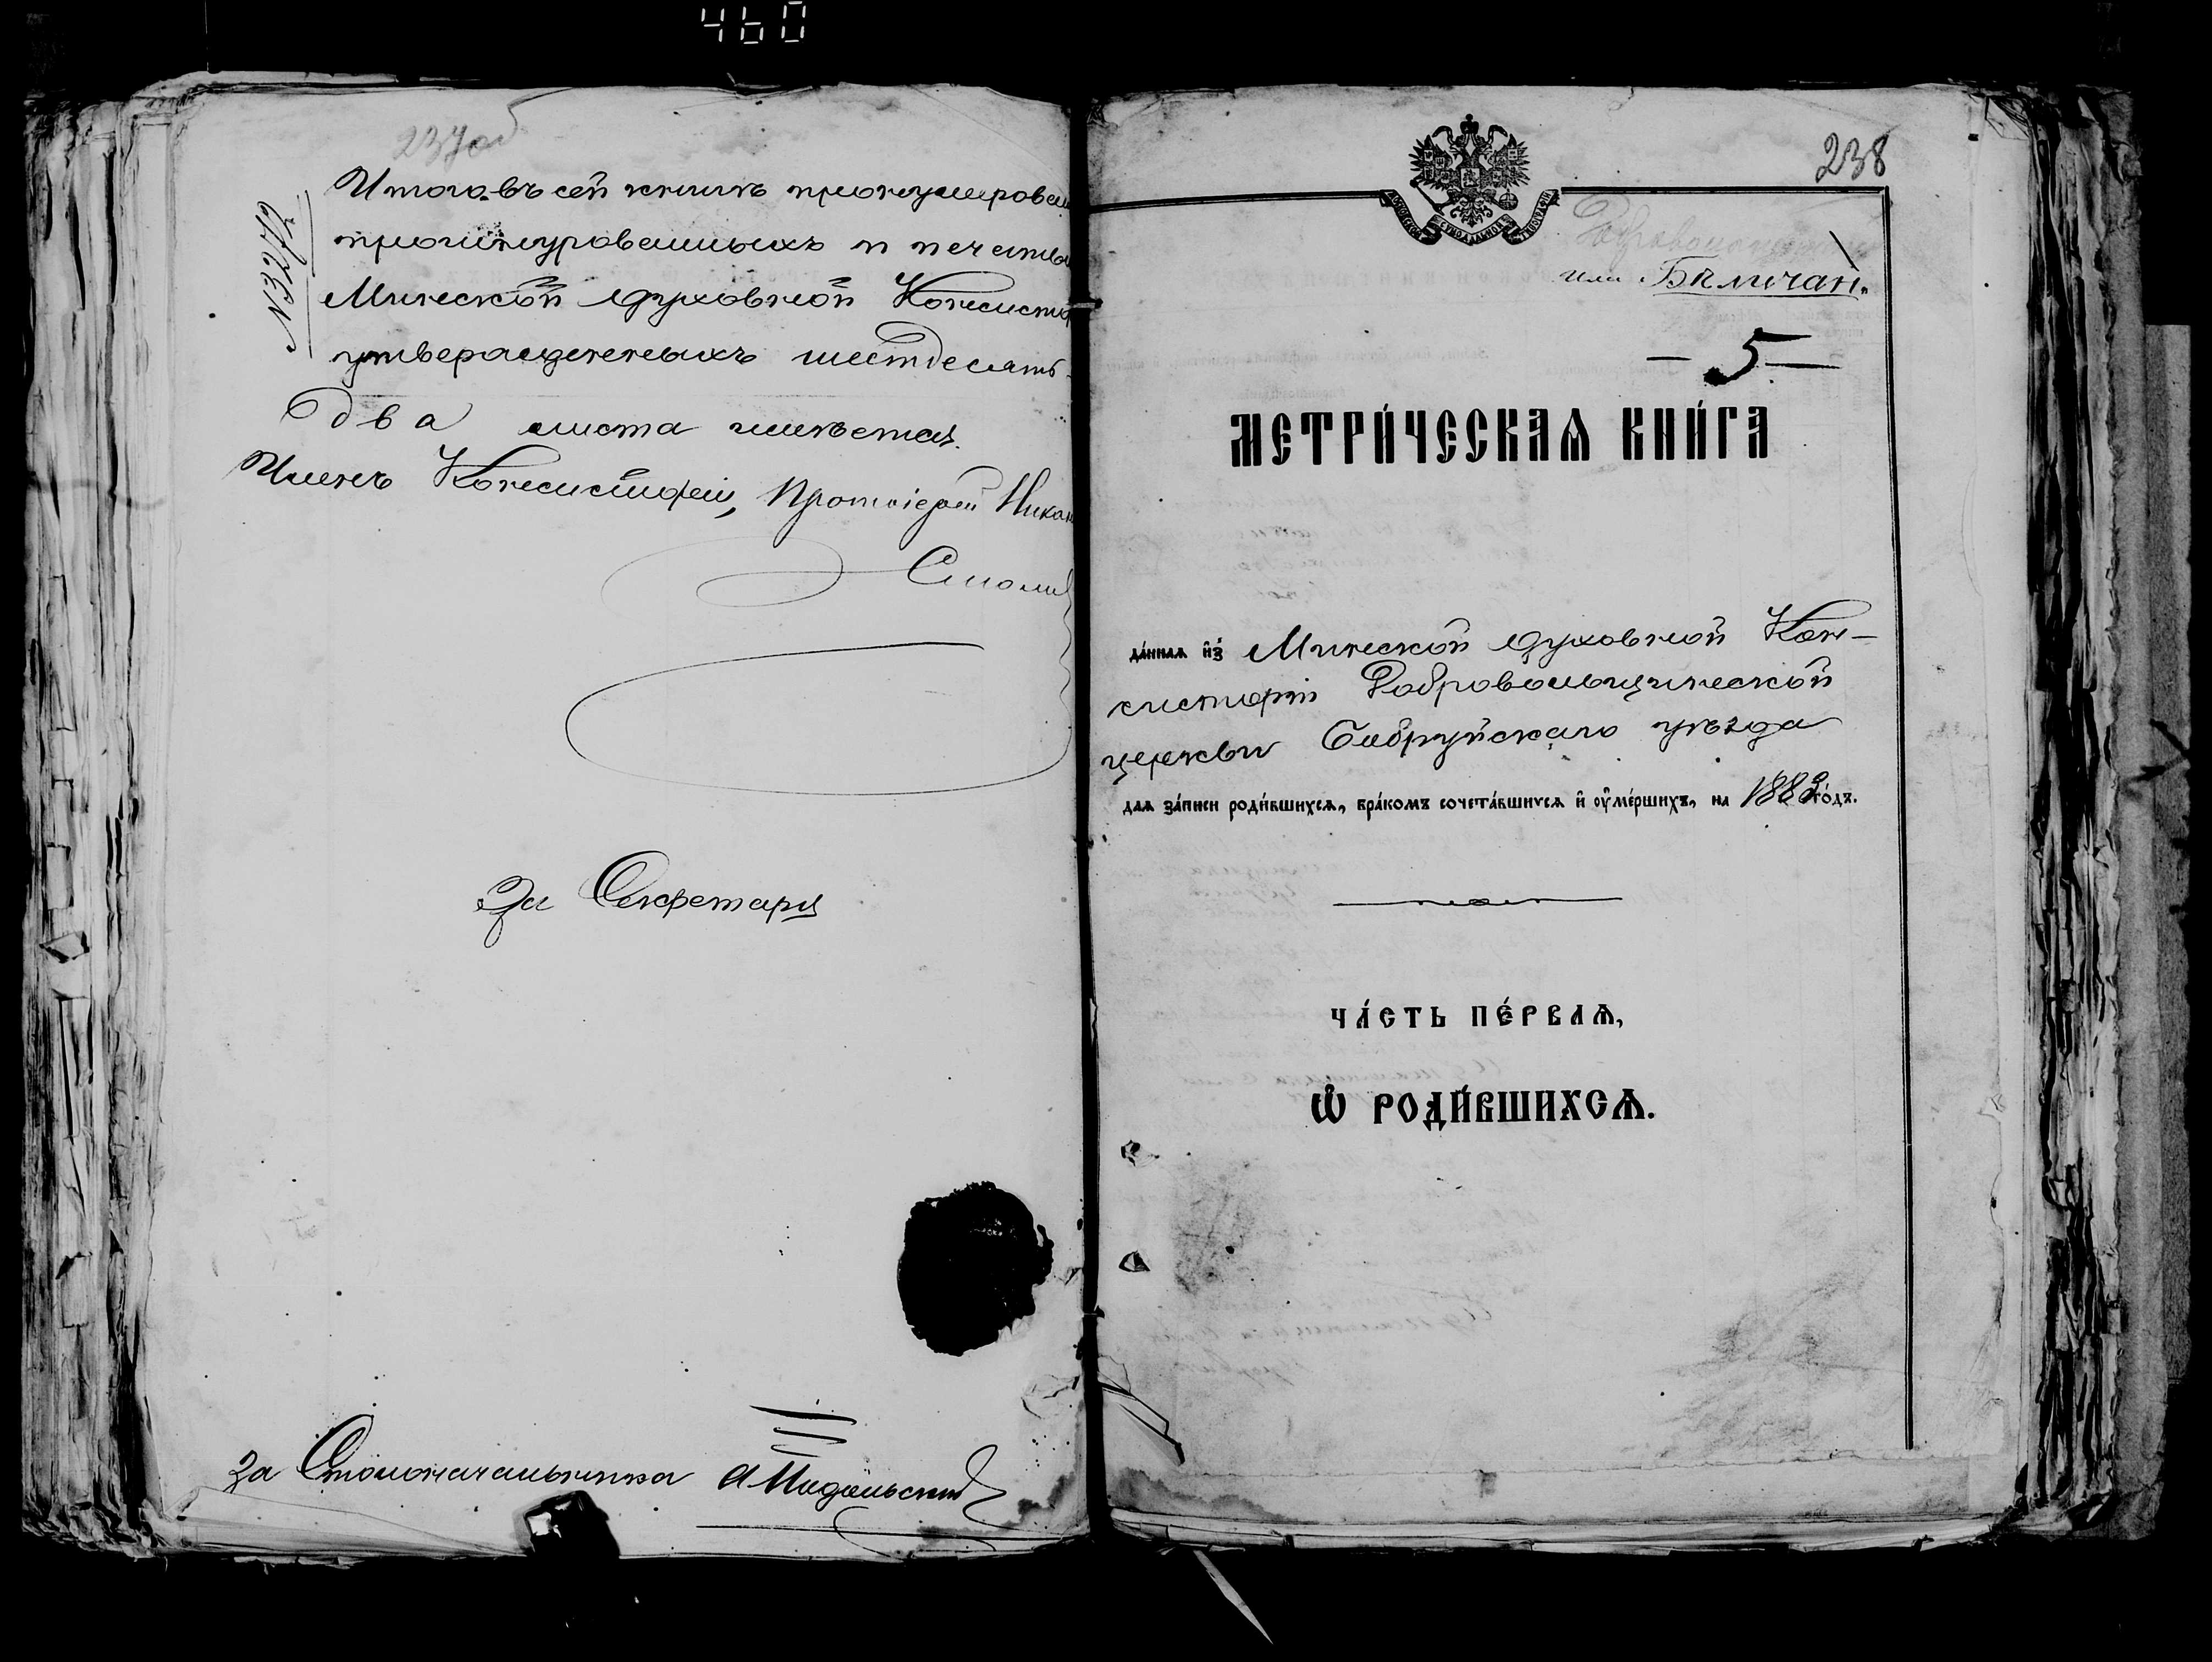 460
237об
№3272
Итого въ сей книгѣ пронумерован
прошнурованныхъ и печатью
Минской Духовной Консисто
утвержденныхъ шестдесятъ
два листа имѣется.
Членъ Консисторіи, Протоіерей Никан
Смолич
За Секретаря
За Столоначальника
238
или Бѣличан.
— 5 —
МЕТРИ́ЧЕСКАѦ КНИ́ГА
да́ннаѧ и҆з̾ Минской Духовной Кон-
систоріи Добровольщинской
церкви Бобруйскаго уѣзда
длѧ за́писи роди́вшихсѧ, бра́комъ сочета́вшихсѧ и҆ ᲂу҆ме́ршихъ, на 1882 го́дъ.
ЧА́СТЬ ПЕ́РВАѦ,
Ѡ҆ РОДИ́ВШИХСѦ.